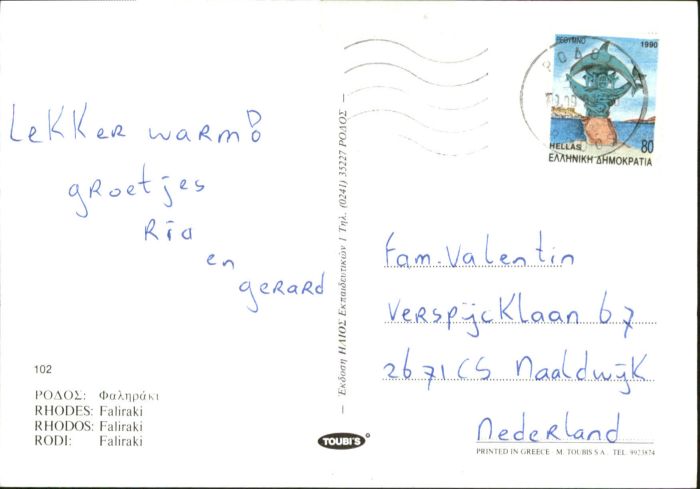 LEKKER WARM!
GROETJES
RIA
en
GERARD
102
ΡΟΔΟΣ: Φαληράκι
RHODES: Faliraki
RHODOS: Faliraki
RODI: Faliraki
— Έκδοση ΗΛΙΟΣ Εκπαιδευτικών 1 Τηλ. (0241) 35227 ΡΟΔΟΣ —
TOUBI'S
ΡΕΘΥΜΝΟ 1990
HELLAS 80
ΕΛΛΗΝΙΚΗ ΔΗΜΟΚΡΑΤΙΑ
Fam. Valentin
Verspijcklaan 67
2671CS Naaldwijk
Nederland
PRINTED IN GREECE - M. TOUBIS S.A. TEL. 9923874